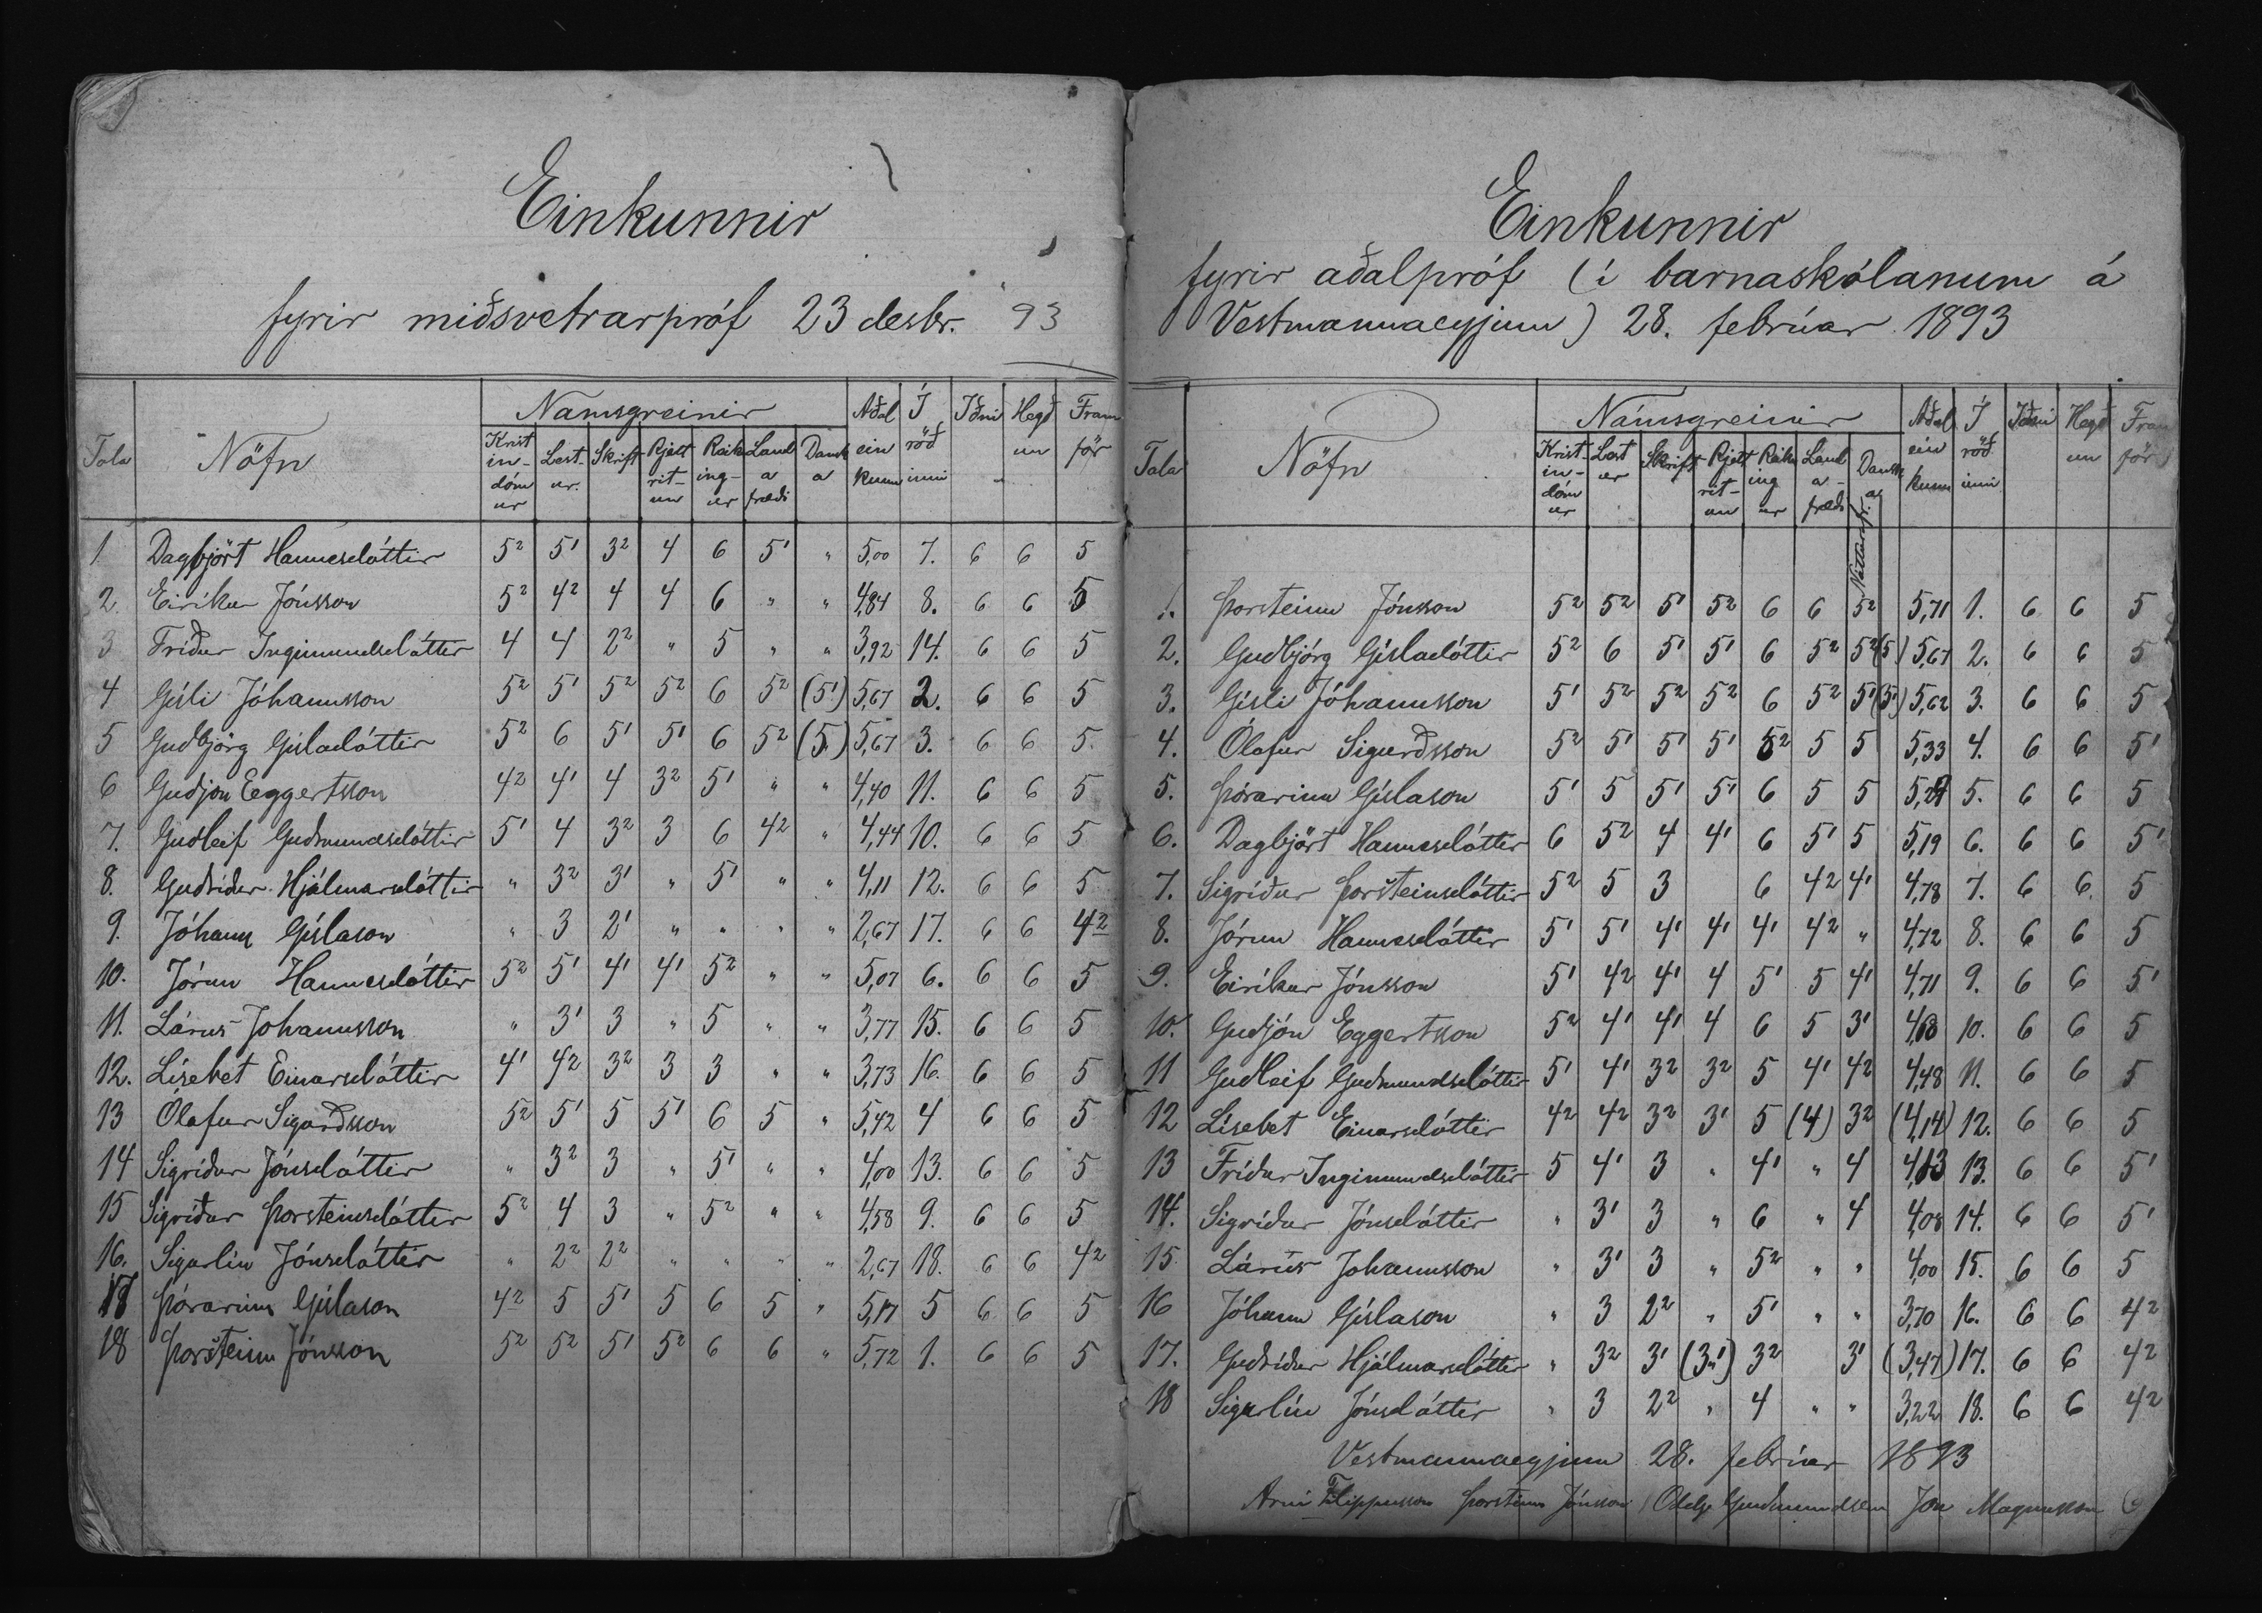 Einkunnir
fyrir miðsvetrarpróf 23 desbr. 93
Tala Nöfn Námsgreinir Aðal einkunn Í röðinni Iðni Hegðun Framför
Kristindómur Lestur. Skrift Rjettritun Reikningur Landafræði Danska
1 Dagbjört Hannesdóttir 5² 5¹ 3² 4 6 5¹ „ 5,00 7. 6 6 5
2. Eiríkur Jónsson 5² 4² 4 4 6 „ „ 4,84 8. 6 6 5
3 Fríður Ingimundsdóttir 4 4 2² „ 5 „ „ 3,92 14. 6 6 5
4 Gísli Jóhannsson 5² 5¹ 5² 5² 6 5² (5¹) 5,67 2. 6 6 5
5 Guðbjörg Gísladóttir 5² 6 5¹ 5¹ 6 5² (5) 5,67 3. 6 6 5
6 Guðjón Eggertsson 4² 4¹ 4 3² 5¹ „ „ 4,40 11. 6 6 5
7. Guðleif Guðmundsdóttir 5¹ 4 3² 3 6 4² „ 4,44 10. 6 6 5
8. Guðríður Hjálmarsdóttir „ 3² 3¹ „ 5¹ „ „ 4,11 12. 6 6 5
9. Jóhann Gíslason „ 3 2¹ „ „ „ „ 2,67 17. 6 6 4²
10. Jórun Hannesdóttir 5² 5¹ 4¹ 4¹ 5² „ „ 5,07 6. 6 6 5
11. Lárus Johannsson „ 3¹ 3 „ 5 „ „ 3,77 15. 6 6 5
12. Lísebet Einarsdóttir 4¹ 4² 3² 3 3 „ „ 3,73 16. 6 6 5
13 Ólafur Sigurðsson 5² 5¹ 5 5¹ 6 5 „ 5,42 4 6 6 5
14 Sigríður Jónsdóttir „ 3² 3 „ 5¹ „ „ 4,00 13. 6 6 5
15 Sigríður Þorsteinsdóttir 5² 4 3 „ 5² „ „ 4,58 9. 6 6 5
16. Sigurlín Jónsdóttir „ 2² 2² „ „ „ „ 2,67 18. 6 6 4²
17 Þórarinn Gíslason 4² 5 5¹ 5 6 5 „ 5,17 5 6 6 5
18 Þorsteinn Jónsson 5² 5² 5¹ 5² 6 6 „ 5,72 1. 6 6 5
Einkunnir
fyrir aðalpróf (í barnaskólanum á
Vestmannaeyjum) 28. febrúar 1893
Tala Nöfn Námsgreinir Aðal einkunn Í röðinni Iðni Hegðun Framför
Kristindómur Lestur Skrift Rjettritun Reikningur Landafræði Danska Natturufr.
1. Þorsteinn Jónsson 5² 5² 5¹ 5² 6 6 5² 5,71 1. 6 6 5
2. Guðbjörg Gísladóttir 5² 6 5¹ 5¹ 6 5² 5² (5) 5,67 2. 6 6 5
3. Gísli Jóhannsson 5¹ 5² 5² 5² 6 5² 5¹ (5¹) 5,62 3. 6 6 5
4. Ólafur Sigurðsson 5² 5¹ 5¹ 5¹ 5² 5 5 5,33 4. 6 6 5¹
5. Þórarinn Gíslason 5¹ 5 5¹ 5¹ 6 5 5 5. 6 6 5
6. Dagbjört Hannesdóttir 6 5² 4 4¹ 6 5¹ 5 5,19 6. 6 6 5¹
7. Sigríður Þorsteinsdóttir 5² 5 3 6 4² 4¹ 4,78 7. 6 6 5
8. Jórun Hannesdóttir 5¹ 5¹ 4¹ 4¹ 4¹ 4² „ 4,72 8. 6 6 5
9. Eiríkur Jónsson 5¹ 4² 4¹ 4 5¹ 5 4¹ 4,71 9. 6 6 5¹
10. Guðjón Eggertsson 5² 4¹ 4¹ 4 6 5 3¹ 10. 6 6 5
11 Guðleif Guðmundsdóttir 5¹ 4¹ 3² 3² 5 4¹ 4² 4,48 11. 6 6 5
12 Lísebet Einarsdóttir 4² 4² 3² 3¹ 5 (4) 3² (4,14) 12. 6 6 5
13 Fríður Ingimundsdóttir 5 4¹ 3 „ 4¹ „ 4 4,13 13. 6 6 5¹
14. Sigríður Jónsdóttir „ 3¹ 3 „ 6 „ 4 4,08 14. 6 6 5¹
15 Lárus Johannsson „ 3¹ 3 „ 5² „ „ 4,00 15. 6 6 5
16 Jóhann Gíslason „ 3 2² „ 5¹ „ „ 3,70 16. 6 6 4²
17. Guðríður Hjálmarsdóttir „ 3² 3¹ (3¹) 3² 3¹ (3,47) 17. 6 6 4²
18 Sigurlín Jónsdóttir „ 3 2² „ 4 „ „ 3,22 18. 6 6 4²
Vestmannaeyjum 28. febrúar 1893
Árni Filippusson Þorsteinn Jónsson Oddg. Guðmundsen Jón Magnússon